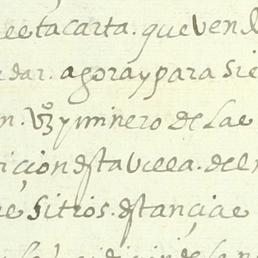 eeta carta. que vend
dar. agora y para sie
n. Vº y minero de lae
ición desta villa. del
e sitios. estançiae